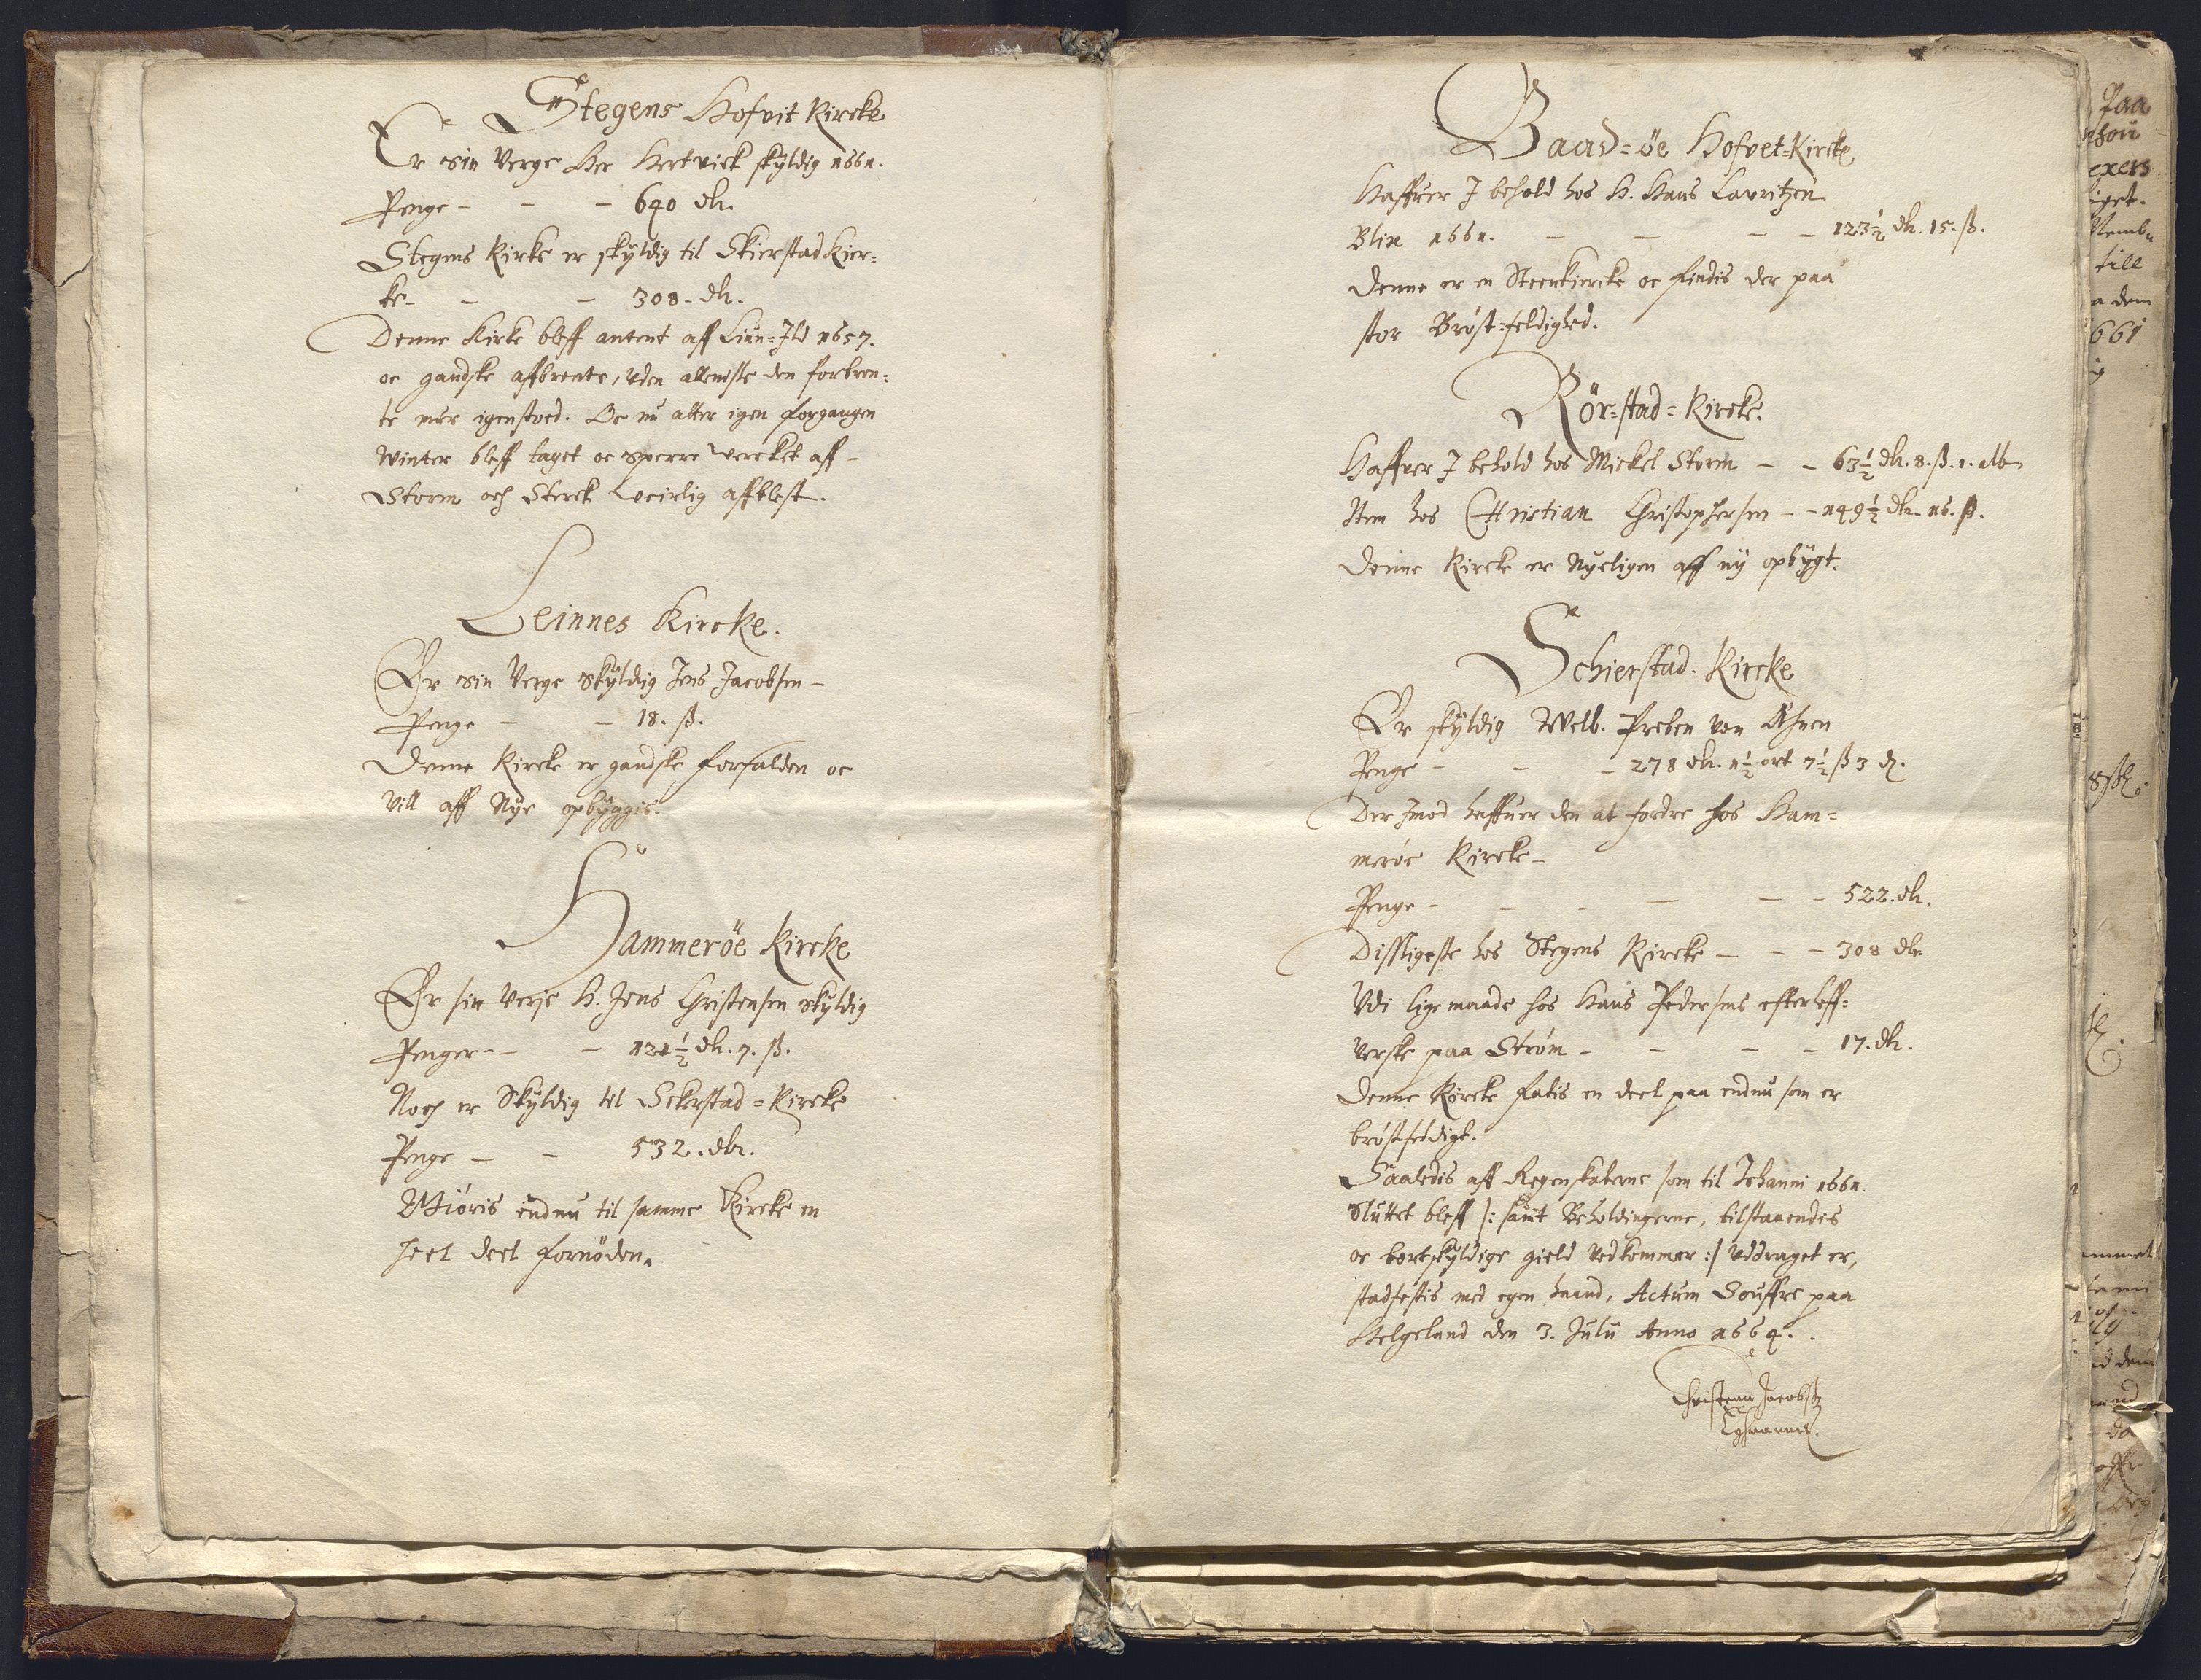 Stegens Hofvit Kircke
Er sin Verge Her Hertvick skÿldig 1661.
Penge - - - 640 dlr.
Stegens Kirke er skÿldig til Skierstad Kier=
ke - - - 308 - dlr.
Denne Kirke bleff antent aff Liun=Ild 1657.
oc gandske affbrente, Uden alleniste den forbren=
te mur igenstoed. Oc nu atter igen forgangen
Winter bleff taget oc Sperre Vercket aff -
Storm och Sterck Veirlig affblest.
Leinnes Kircke.
Er sin Verge Skÿldig Jens Jacobsen -
Penge - - 18. ß.
Denne Kircke er gandske forfalden oc
Vill aff Nye opbÿggis.
Hammeröe Kircke
Er sin Verje H. Jens Christensen Skÿldig
Penger - - - 121½ dlr. 7. ß.
Noch er Skÿldig til Skerstad=Kircke
Penge - - 532. dlr.
Wtiöris endnu til samme Kircke en
heel deel fornöden.
Baad=öe Hofvet=Kircke
Haffuer I behold hos H. Hans Lauritzen
Blix 1661. - - - - 123½ dlr. 15. ß.
Denne er en Steenkiercke oc findis der paa
stor Bröst=feldighed.
Rör=stad=Kircke.
Haffver I behold hos Mickel Storm - - 63½ dlr. 8. ß. 1. alb
Item hos Christian Christophersen - - 149½ dlr. 16. ß.
Denne Kircke er Nyeligen aff nÿ opbÿgt.
Schierstad. Kircke
Er skÿldig Welb. Preben von Ahnen
Penge - - - 278 dlr. 1½ ort 7½ ß 3 d.
Der Imod haffuer den at fordre hos Ham=
meröe Kircke -
Penge - - - - - - 522. dlr.
Disligeste hos Stegens Kircke - - - 308 dlr.
Udi lige maade hos Hans Pedersens efterleff=
verske paa Ström - - - - 17. dlr.
Denne Kircke fatis en deel paa endnu som er
bröstfeldigt.
Saaledis aff Regenskaberne som til Johanni 1661.
Sluttet bleff /: samt Beholdingerne, tilstaaendes
oc bortskÿldige gield vedkommer :/ Uddraget er,
stadfestis med egen haand, Actum Souffre paa
Helgeland den 3. Julii Anno 1664.
Christenn Jacobß
Paa
exers
till
a dem
661